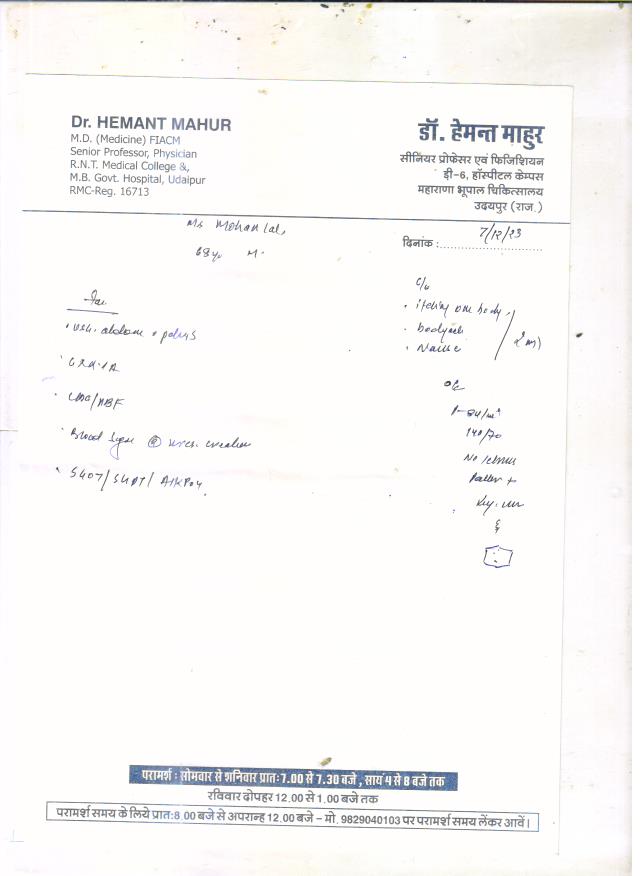 Dr. HEMANT MAHUR
M.D. (Medicine) FIACM
Senior Professor, Physician
R.N.T. Medical College &,
M.B. Govt. Hospital, Udaipur
RMC-Reg. 16713
डॉ. हेमन्त माहुर
सीनियर प्रोफेसर एवं फिजिशियन
डी-6, हॉस्पीटल केम्पस
महाराणा भूपाल चिकित्सालय
उदयपुर (राज.)
Mr Mohan Lal,
68 y. M.
दिनांक :
7/12/23
C/o
• itching
• bodyache
O/E
140/70
No icterus
Pallor +
• USG. abdomen
• CBC/
• Blood Sugar
• SGOT/SGPT/AlkPo4
परामर्श : सोमवार से शनिवार प्रातः7.00 से 7.30 बजे , सायं 4 से 8 बजे तक
रविवार दोपहर 12.00 से 1.00 बजे तक
परामर्श समय के लिये प्रातः8.00 बजे से अपरान्ह 12.00 बजे – मो. 9829040103 पर परामर्श समय लेंकर आवें।